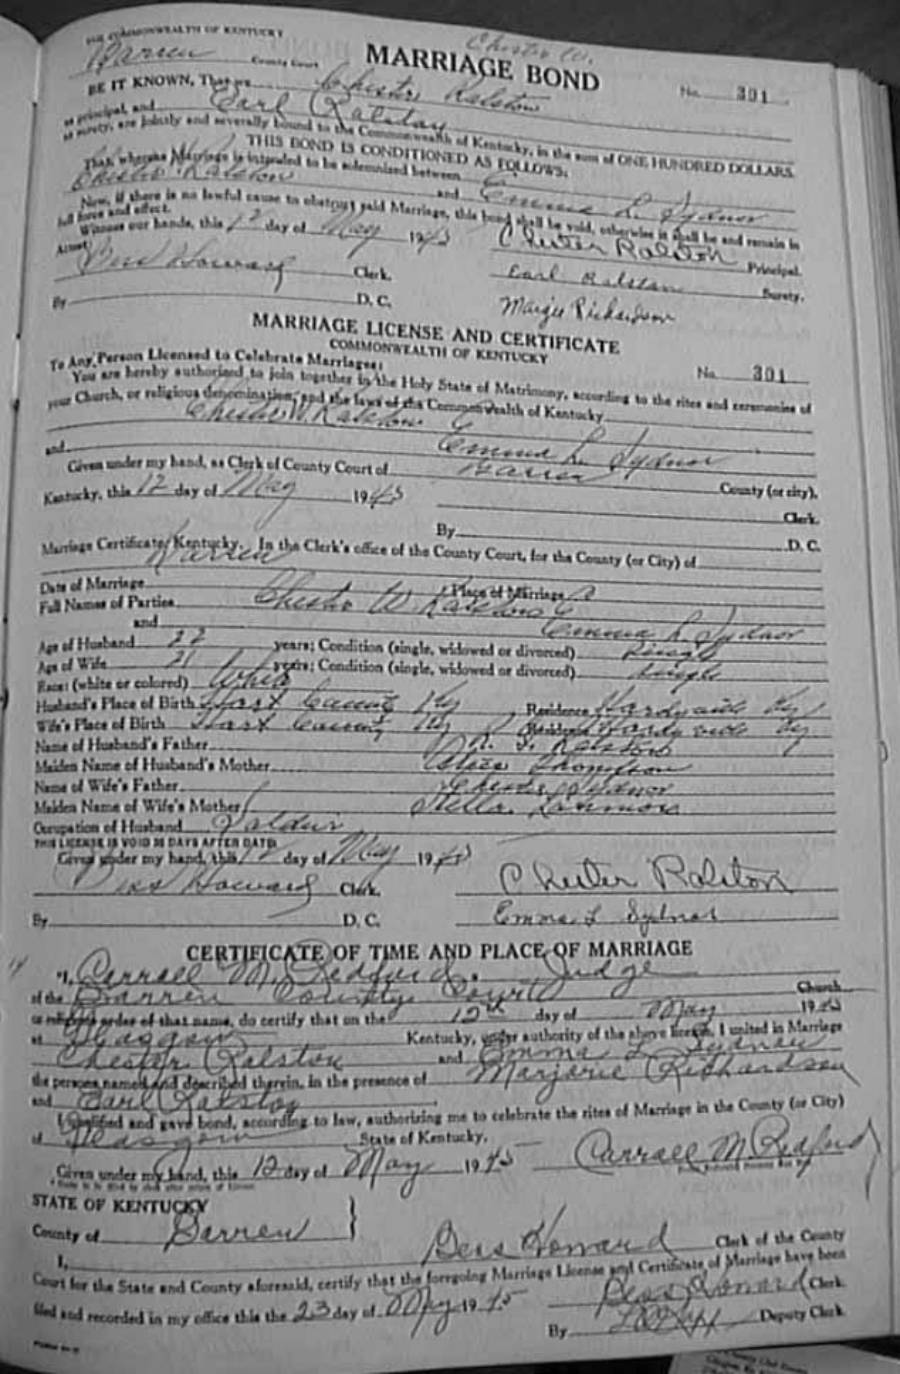 THE COMMONWEALTH OF KENTUCKY
Chester W.
Barren County Court MARRIAGE BOND No. 301
BE IT KNOWN, That we Chester Ralston
as principal, and Earl Ralston
as surety, are jointly and severally bound to the Commonwealth of Kentucky, in the sum of ONE HUNDRED DOLLARS.
THIS BOND IS CONDITIONED AS FOLLOWS:
That, whereas Marriage is intended to be solemnized between
Chester Ralston and Emma L. Sydnor
Now, if there is no lawful cause to obstruct said Marriage, this bond shall be void, otherwise it shall be and remain in
full force and effect.
Witness our hands, this 12 day of May 1945 Chester Ralston Principal.
Attest:
Bess Howard Clerk. Earl Ralston Surety.
By D. C. Margie Richardson
MARRIAGE LICENSE AND CERTIFICATE
COMMONWEALTH OF KENTUCKY
To Any Person Licensed to Celebrate Marriages: No. 301
You are hereby authorized to join together in the Holy State of Matrimony, according to the rites and ceremonies of
your Church, or religious denomination, and the laws of the Commonwealth of Kentucky
Chester W. Ralston
and Emma L. Sydnor
Given under my hand, as Clerk of County Court of Barren County (or city),
Kentucky, this 12 day of May 1945
Clerk.
By D. C.
Marriage Certificate, Kentucky. In the Clerk's office of the County Court, for the County (or City) of
Barren
Date of Marriage Place of Marriage
Full Names of Parties Chester W. Ralston
and Emma L. Sydnor
Age of Husband 22 years; Condition (single, widowed or divorced) Single
Age of Wife 21 years; Condition (single, widowed or divorced) Single
Race: (white or colored) White
Husband's Place of Birth Hart County Ky Residence Hardyville Ky
Wife's Place of Birth Hart County Ky Residence Hardyville Ky
Name of Husband's Father Ralston
Maiden Name of Husband's Mother Thompson
Name of Wife's Father Sydnor
Maiden Name of Wife's Mother Stella
Occupation of Husband
THIS LICENSE IS VOID 30 DAYS AFTER DATE:
Given under my hand, this 12 day of May 1945
Bess Howard Clerk. Chester Ralston
By D. C. Emma L Sydnor
CERTIFICATE OF TIME AND PLACE OF MARRIAGE
"I, Carroll M. Redford, Judge
of the Barren County Court Church
or religious order of that name, do certify that on the 12th day of May 1945
at Glasgow Kentucky, under authority of the above license, I united in Marriage
Chester Ralston and Emma L Sydnor
the persons named and described therein, in the presence of Marjorie Richardson
and Earl Ralston
I qualified and gave bond, according to law, authorizing me to celebrate the rites of Marriage in the County (or City)
of Glasgow State of Kentucky.
Given under my hand, this 12 day of May 1945 Carroll M Redford
STATE OF KENTUCKY
County of Barren
I, Bess Howard Clerk of the County
Court for the State and County aforesaid, certify that the foregoing Marriage License and Certificate of Marriage have been
filed and recorded in my office this the 23 day of May 1945 Bess Howard Clerk.
By Deputy Clerk